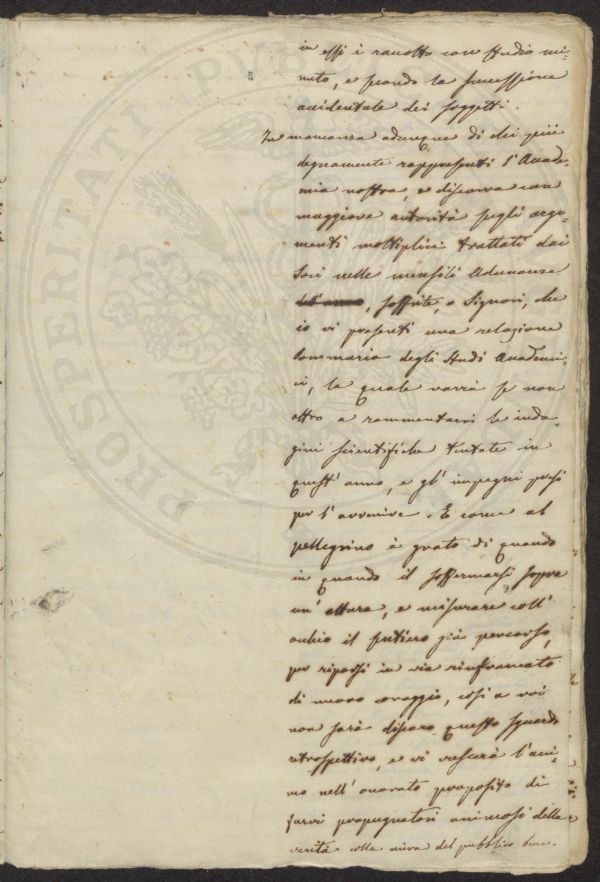 in essi è raccolto con studio mi-
nuto, e secondo la successione
accidentale dei soggetti.
In mancanza adunque di chi più
degnamente rappresenti l'Acade-
mia nostra, e discorra con
maggiore autorità sugli argo-
menti moltiplici trattati dai
Soci nelle mensili Adunanze
dell'anno, soffrite, o Signori, che
io vi presenti una relazione
sommaria degli studi Academi-
ci, la quale varrà se non
altro a rammentarvi le inda-
gini scientifiche tentate in
quest'anno, e gl'impegni presi
per l'avvenire. E come al
pellegrino è grato di quando
in quando il soffermarsi sopra
un'altura, e misurare coll'
occhio il sentiero già percorso,
per riporsi in via rinfrancato
di nuovo coraggio, così a voi
non sarà discaro questo sguardo
retrospettivo, e vi crescerà l'ani-
mo nell'onorato proposito di
farvi propugnatori animosi della
verità colla mira del pubblico bene.
PROSPERITATI PUBL